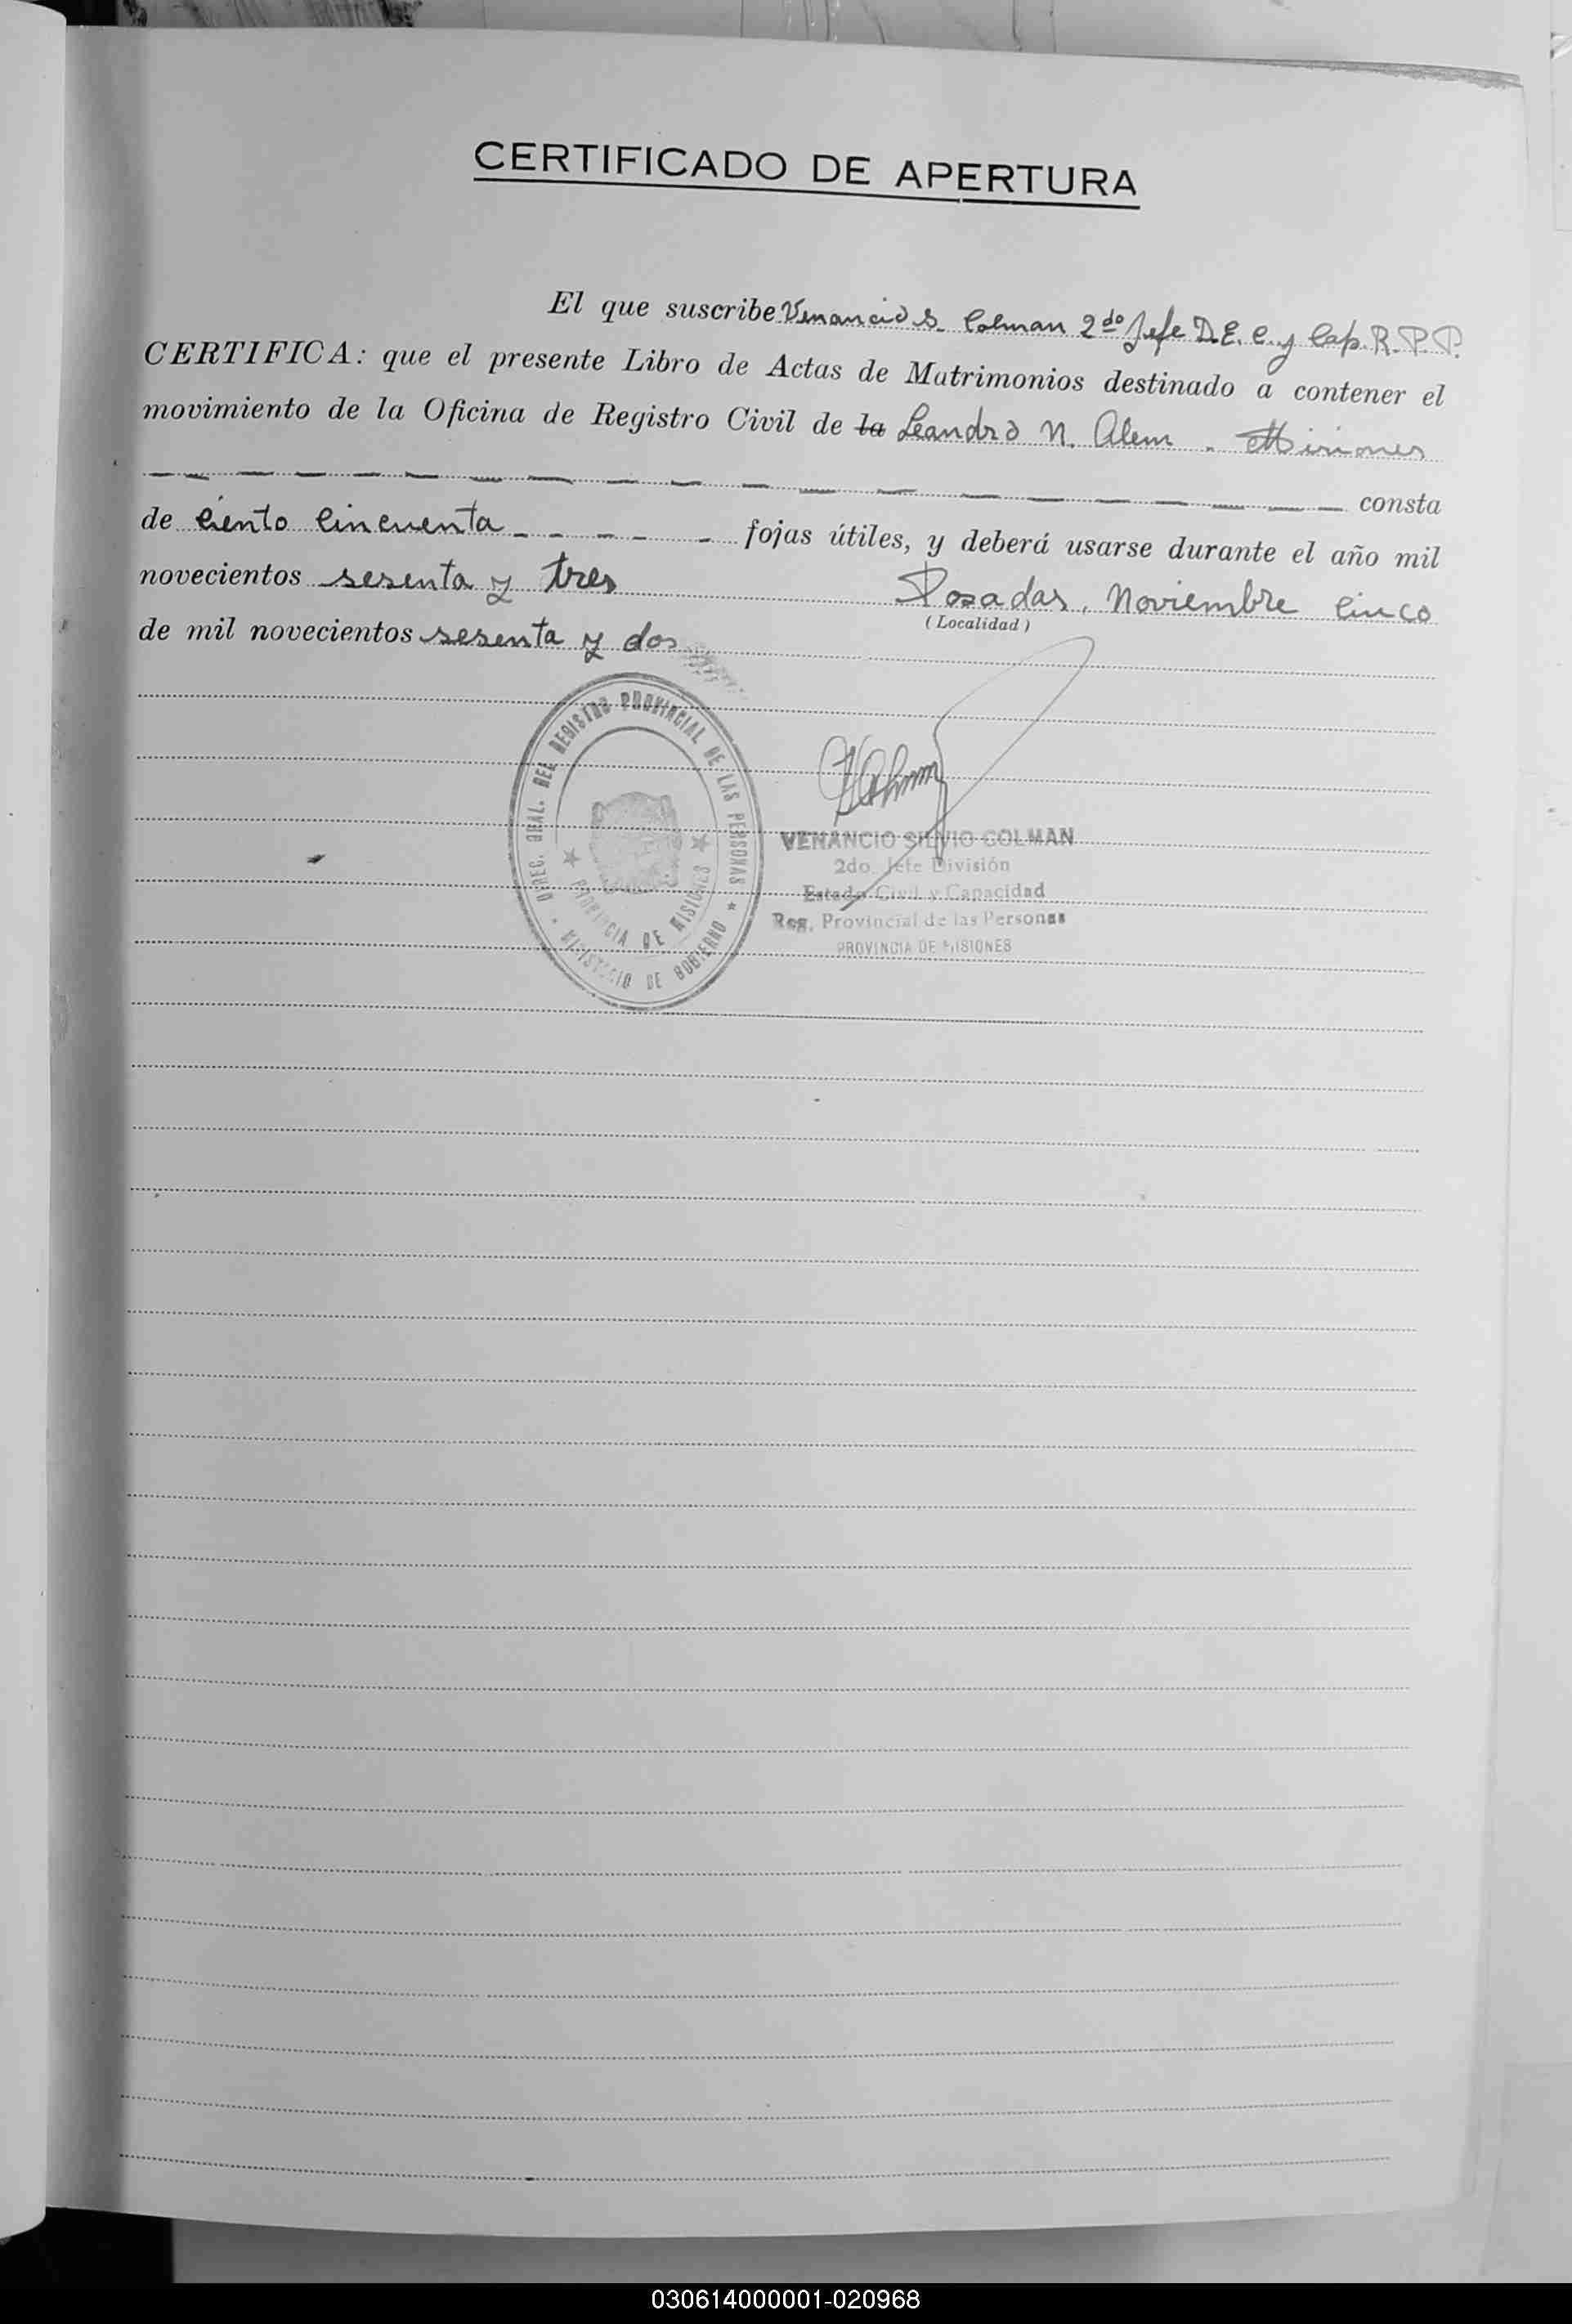 CERTIFICADO DE APERTURA
El que suscribe Venancio S. Colman 2do Jefe D.E.C. y Cap. R.P.P.
CERTIFICA: que el presente Libro de Actas de Matrimonios destinado a contener el
movimiento de la Oficina de Registro Civil de la Leandro N. Alem - Misiones
consta
de ciento cincuenta - - - - - fojas útiles, y deberá usarse durante el año mil
novecientos sesenta y tres Posadas, Noviembre cinco
(Localidad)
de mil novecientos sesenta y dos
DIREC. GRAL. DEL REGISTRO PROVINCIAL DE LAS PERSONAS
PROVINCIA DE MISIONES
MINISTERIO DE GOBIERNO
VENANCIO SILVIO COLMAN
2do. Jefe División
Estado Civil y Capacidad
Reg. Provincial de las Personas
PROVINCIA DE MISIONES
030614000001-020968